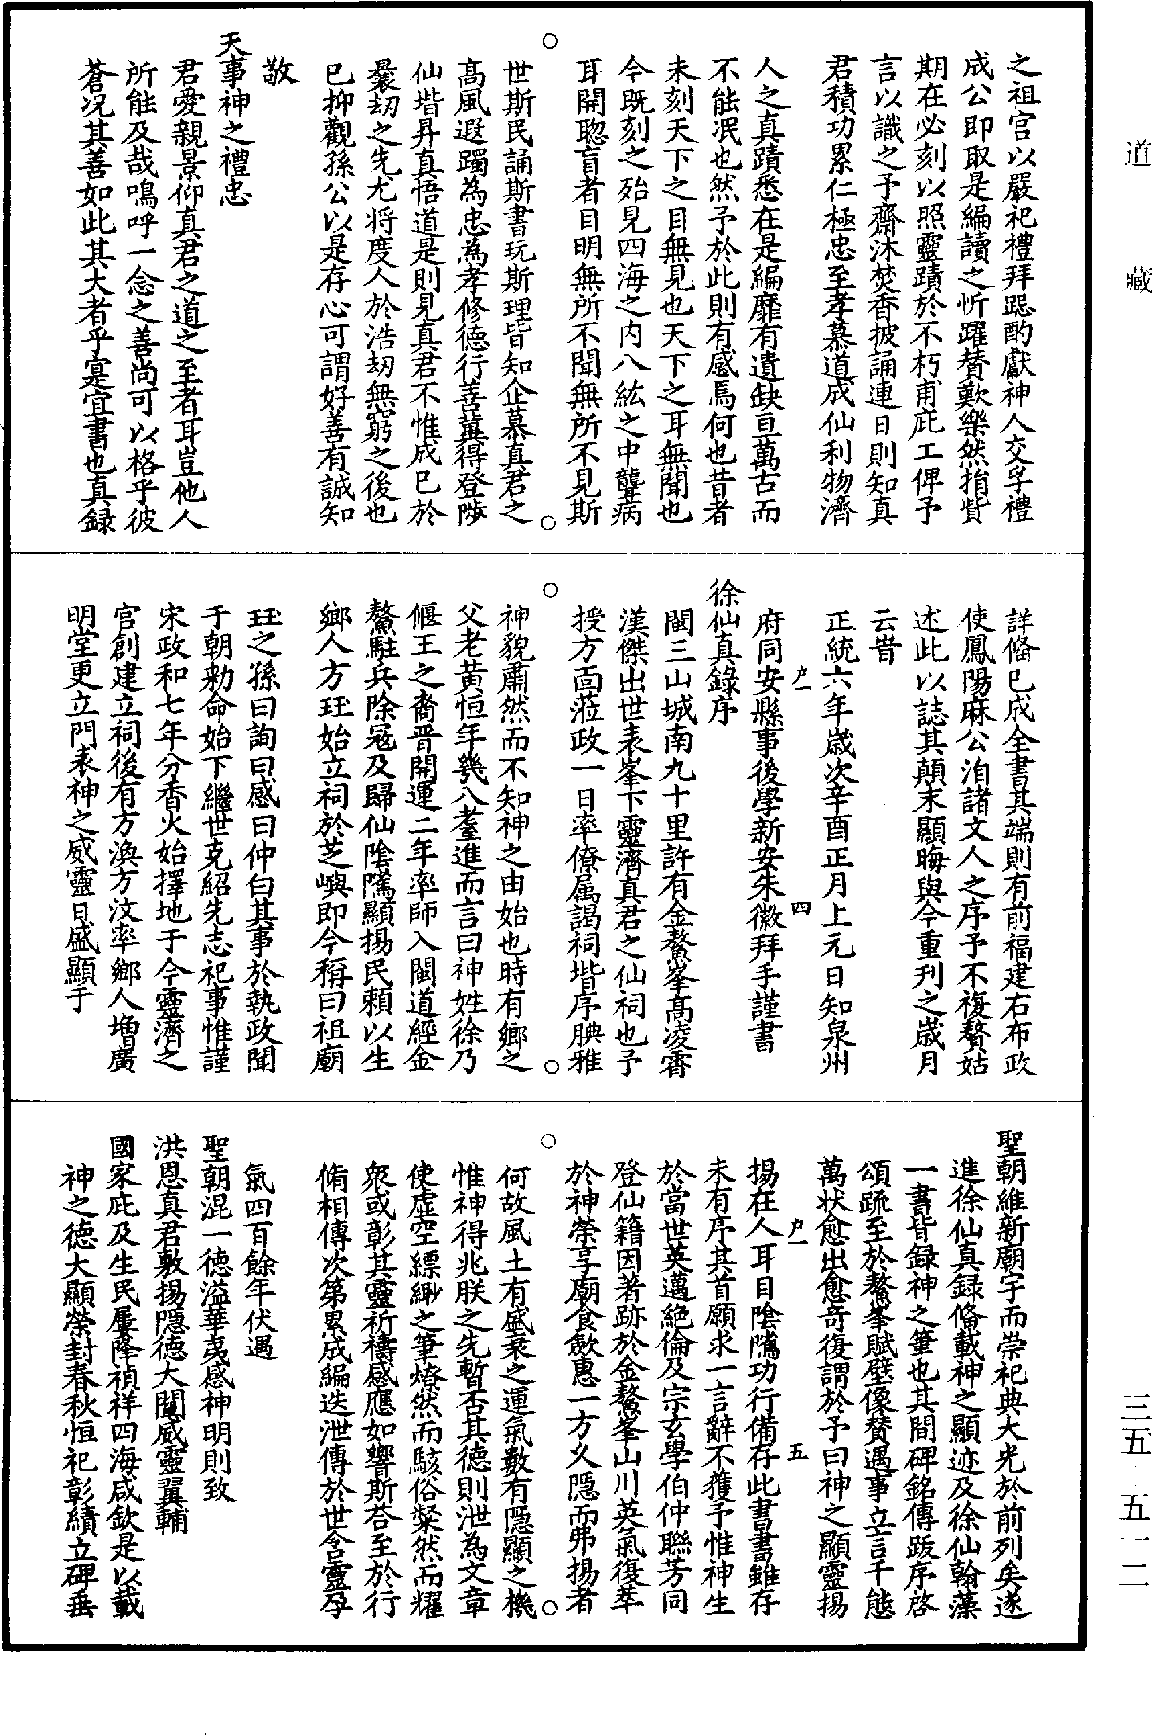 道藏
三五·五一二
之祖宫以嚴祀禮拜跽酌獻神人交孚禮
成公即取是編讀之忻躍賛歎樂然捐貲
期在必刻以照靈蹟於不朽甫庇工俾予
言以識之予齋沐焚香披誦連日則知真
君積功累仁極忠至孝慕道成仙利物濟
人之真蹟悉在是編靡有遺缺亘萬古而
不能泯也然予於此則有感焉何也昔者
未刻天下之目無見也天下之耳無聞也
今既刻之殆見四海之内八紘之中聾病
耳開聦盲者目明無所不聞無所不見斯
世斯民誦斯書玩斯理皆知企慕真君之
高風遐躅為忠為孝修德行善冀得登陟
仙堦昇真悟道是則見真君不惟成巳於
曩刼之先尤将度人於浩刼無窮之後也
巳抑觀孫公以是存心可謂好善有誠知
敬
天事神之禮忠
君愛親景仰真君之道之至者耳豈他人
所能及哉嗚呼一念之善尚可以格乎彼
蒼况其善如此其大者乎寔宜書也真録
詳偹巳成全書其端則有前福建右布政
使鳳陽麻公洎諸文人之序予不複贅姑
述此以誌其顛末顯晦與今重刊之歳月
云旹
正統六年歳次辛酉正月上元日知泉州
府同安縣事後學新安朱徽拜手謹書
尹一　四
徐仙真錄序
閩三山城南九十里許有金鰲峯高凌霄
漢傑出世表峯下靈濟真君之仙祠也予
授方面蒞政一日率僚属謁祠堦序腆雅
神貌肅然而不知神之由始也時有鄉之
父老黄恒年幾八耋進而言曰神姓徐乃
偃王之裔晋開運二年率師入閩道經金
鰲駐兵除冦及歸仙陰隲顯揚民賴以生
鄉人方玨始立祠於芝嶼即今稱曰祖廟
玨之孫曰詢曰感曰仲白其事於執政聞
于朝勑命始下繼世克紹先志祀事惟謹
宋政和七年分香火始擇地于今靈濟之
宫創建立祠後有方渙方汶率鄉人增廣
明堂更立門表神之威靈日盛顯于
聖朝維新廟宇而崇祀典大光於前列矣遂
進徐仙真録偹載神之顯迹及徐仙翰藻
一書皆録神之筆也其間碑銘傳跋序啓
頌䟽至於鰲峯賦壁像賛遇事立言千態
萬狀愈出愈奇復謂於予曰神之顯靈揚
揚在人耳目陰隲功行備存此書書雖存
尹一　五
未有序其首願求一言辭不獲予惟神生
於當世英邁絶倫及宗玄學伯仲聮芳同
登仙籍因著跡於金鰲峯山川英氣復萃
於神榮享廟食歆惠一方乆隱而弗揚者
何故風土有盛衰之運氣數有隱顯之機
惟神得兆朕之先暫否其德則泄為文章
使虚空縹緲之筆燎然而駭俗粲然而耀
衆或彰其靈祈禱感應如響斯荅至於行
脩相傳次第累成編迭泄傳於世含靈孕
氣四百餘年伏遇
聖朝混一德溢華夷感神明則致
洪恩真君敷揚隱德大闡威靈翼輔
國家庇及生民屢降禎祥四海咸欽是以載
神之德大顯榮封春秋恒祀彰績立碑垂